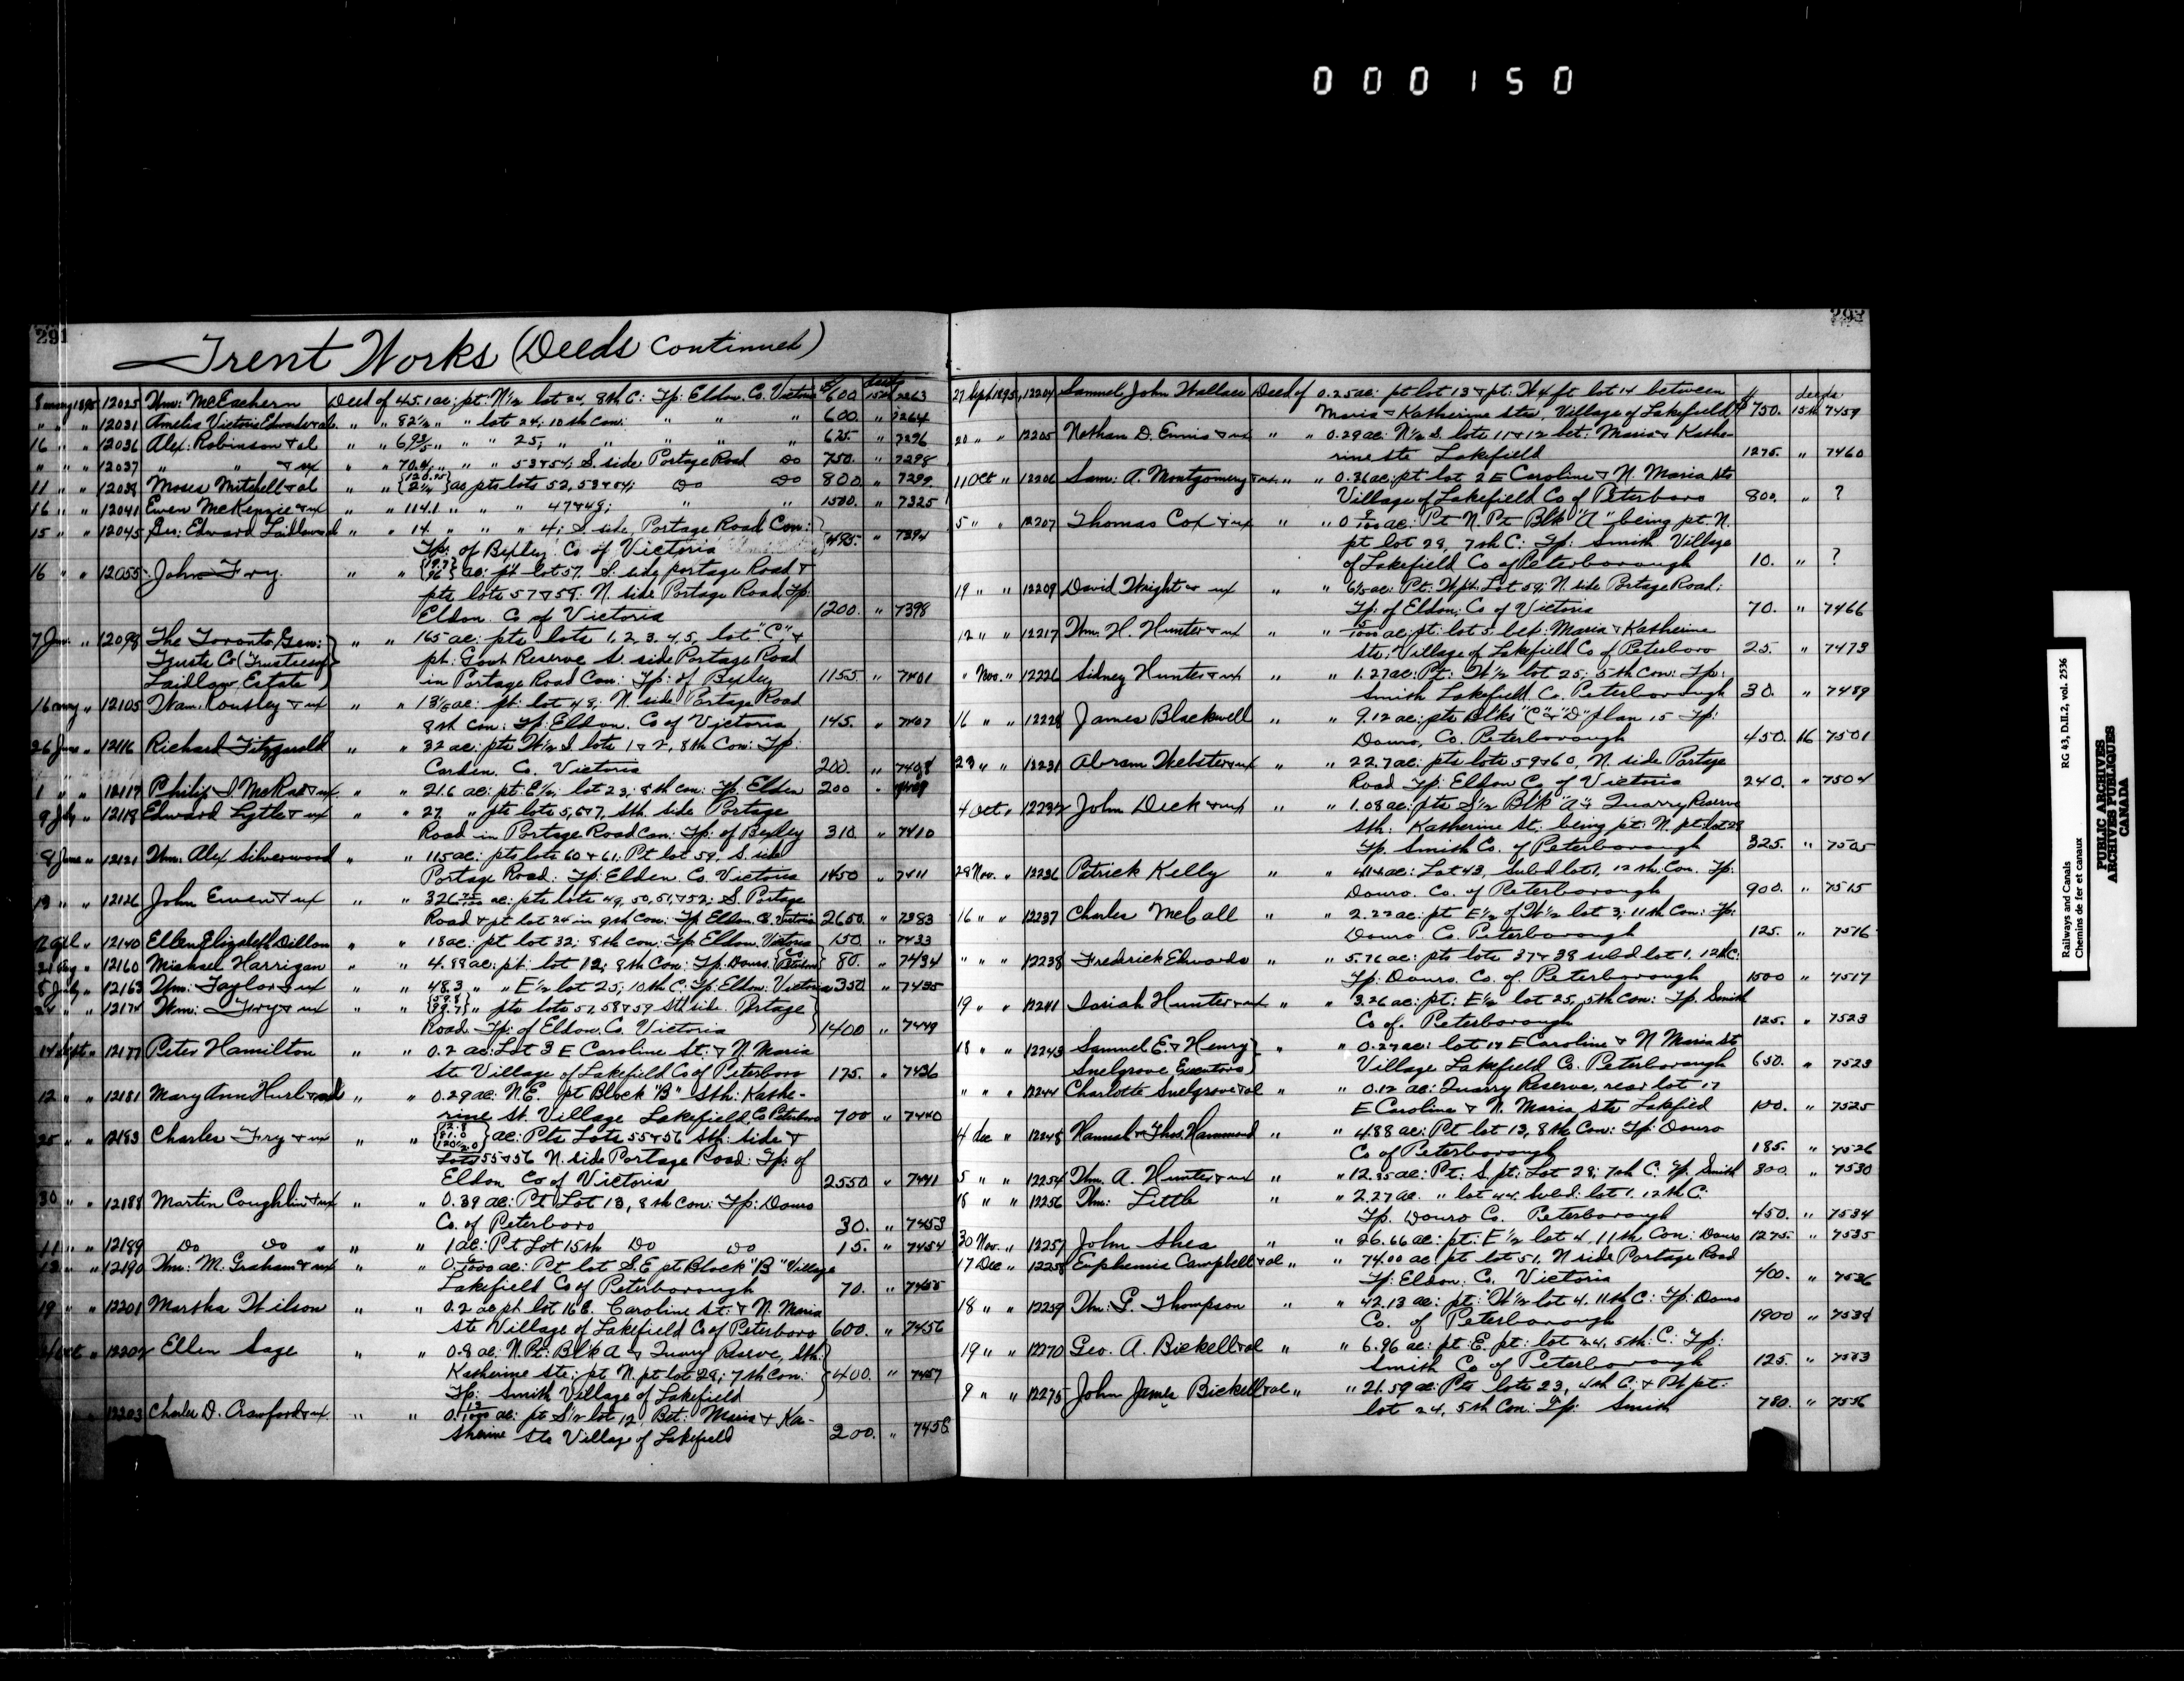 000150
291
Trent Works (Deeds continued)
8 may 1895 12025 Wm: McEachern Deed of 45.1 ac: pt: N½ lot 24, 8th C: Tp: Eldon, Co. Victoria $600 15th 7263
" " " 12031 Amelia Victoria Edwards & al. " " 82½ " " lot 24; 10th con: " " " 600. " 7264
16 " " 12036 Alex: Robinson & al " " 69⅗ " " " 25, " " " " " 625. " 7296
" " " 12037 " " & ux " " 70.4 " " " 53 & 54; S. side Portage Road Do 750. " 7298
11 " " 12039 Moses Mitchell & al " " {120.95 2¼} ac pts lots 52, 53 & 54; Do Do 800 " 7299
16 " " 12041 Ewen McKenzie & ux " " 114.1 " " " 47 & 48; " " " 1500. " 7325
15 " " 12045 Geo: Edward Laidlaw " " 14. " " " 4; S. side, Portage Road Con:
Tp: of Bexley Co of Victoria 495. " 7394
16 " " 12055 John Fry. " " {19.7 96} ac: pt lot 57, S. side portage Road &
pts lots 57 & 58. N. side Portage Road, Tp:
Eldon. Co of Victoria 1200. " 7398
7 Jun. " 12098 The Toronto Gen: " " 165 ac: pts lots 1, 2, 3, 4, 5, lot "C", &
Trusts Co (Trustees of pt: Govt Reserve S. side Portage Road
Laidlaw Estate) in Portage Road Con: Tp: of Bexley 1155. " 7401
16 may " 12105 Wam. Rousley & ux " " 13⅕ ac: pt: lot 48: N. side Portage Road
8th con: Tp: Eldon. Co of Victoria 145. " 7407
26 June " 12116 Richard Fitzgerald " " 32 ac: pts W½ S lots 1 & 2, 8th Con: Tp:
Carden. Co. Victoria 200. " 7408
1 " " 12117 Philip S. McRae & ux. " " 21.6 ac: pt: E½; lot 23; 8th con: Tp. Eldon 200 " 7409
9 Jly " 12118 Edward Lytle & ux " " 27 " pts lots 5, 6 & 7, Sth. side Portage
Road in Portage Road Con: Tp: of Bexley 310 " 7410
8 June " 12121 Wm: Alex Silverwood " " 115 ac: pts lots 60 & 61; Pt lot 59, S. side
Portage Road: Tp: Eldon Co. Victoria 1450 " 7411
19 " " 12126 John Ewen & ux " " 326 ac: pts lots 49, 50, 51, & 52; S. Portage
Road & pt lot 24 in 9th Con: Tp Eldon. Co. Victoria 2650. " 7383
12 Apl " 12140 Ellen Elizabeth Dillon " " 18 ac: pt lot 32; 8th con: Tp: Eldon, Victoria 150. " 7433
31 Aug " 12160 Michael Harrigan " " 4.88 ac: pt: lot 12; 8th Con: Tp. Douro. Co Peterboro 80. " 7434
8 July " 12163 Wm: Taylor & ux " " 48.3 " " E½ lot 25; 10th C: Tp: Eldon: Victoria 350 " 7435
24 " " 12174 Wm: Fry & ux " " {59.8 99.7} " pts lots 57, 58 & 59 Sth side. Portage
Road. Tp: of Eldon. Co. Victoria 1400 " 7449
14 Sept " 12177 Peter Hamilton " " 0.2 ac: Lot 3 E Caroline St: & N. Maria
St. Village of Lakefield Co of Peterboro 175. " 7436
12 " " 12181 Mary Ann Hurl & al " " 0.29 ac: N.E. pt Block "B" Sth: Kathe-
rine St. Village Lakefield Co Peterboro 700 " 7440
25 " " 12183 Charles Fry & ux " " ac: Pts Lots 55 & 56 Sth: side &
Lots 55 & 56 N. side Portage Road: Tp: of
Eldon Co of Victoria 2550 " 7441
30 " " 12188 Martin Coughlin & ux " " 0.39 ac: Pt Lot 13, 8th con: Tp: Douro
Co. of Peterboro 30. " 7453
11 " " 12189 Do Do " " " 1 ac: Pt Lot 15th Do Do 15. " 7454
12 " " 12190 Wm: M. Graham & ux " " 0.6/1000 ac: Pt lot S.E pt Block "B" Village
Lakefield Co of Peterborough 70. " 7455
19 " " 12201 Martha Wilson " " 0.2 ac pt lot 16 E. Caroline St: & N. Maria
Sts Village of Lakefield Co of Peterboro 600. " 7456
Oct " 12202 Ellen Sage " " 0.8 ac: N. Pt: Bl'k A & Quarry Reserve, Sth:
Katherine Sts: pt N. pt lot 28; 7th Con: 400. " 7457
Tp: Smith Village of Lakefield
12203 Charles D. Crawford & ux. " " 0.13/1000 ac: pt S½ lot 12, Bet: Maria & Ka-
therine Sts Village of Lakefield 200. " 7458
27 Sept 1895 12204 Samuel John Wallace Deed of 0.25 ac: pt lot 13 & pt: W 4 ft lot 14 between
Maria & Katherine Sts, Village of Lakefield $750. 15th 7459
20 " " 12205 Nathan D. Ennis & ux " " 0.29 ac: N½ S. lots 11 & 12 bet: Maria & Kathe-
rine Sts Lakefield 1275. " 7460
11 Oct " 12206 Sam: A. Montgomery & ux " " 0.36 ac: pt lot 2 E Caroline & N. Maria Sts
Village of Lakefield Co of Peterboro 800. " ?
5 " " 12207 Thomas Cox & ux " " 0 9/100 ac: Pt N. Pt Blk "A" being pt. N.
pt lot 28, 7th C: Tp: Smith Village
of Lakefield Co of Peterborough 10. " ?
19 " " 12209 David Wright & ux " " 6⅕ ac: Pt: W pt: Lot 59; N. side Portage Road:
Tp: of Eldon; Co of Victoria 70. " 7466
12 " " 12217 Wm. H. Hunter & ux " " 15/1000 ac: pt: lot 5. bet: Maria & Katherine
Sts; Village of Lakefield Co of Peterboro 25. " 7473
" Nov. " 12226 Sidney Hunter & ux " " 1.27 ac: Pt: W½ lot 25; 5th Con: Tp:
Smith Lakefield. Co. Peterborough 30. " 7489
16 " " 12228 James Blackwell " " 9.12 ac: pts Blks "C" & "D" plan 15 Tp:
Douro, Co. Peterborough 450. 16 7501
23 " " 12231 Abram Webster & ux " " 22.7 ac: pts lots 59 & 60, N. side Portage
Road Tp: Eldon Co of Victoria 240. " 7504
4 Oct " 12232 John Dick & ux " " 1.08 ac: pts S½ Bl'k "A" & Quarry Reserve
Sth: Katherine St: being pt: N. pt: lot 28
Tp. Smith Co. of Peterborough 325. " 7505
28 Nov. " 12236 Patrick Kelly " " 4.14 ac: Lot 43, Subd lot 1, 12th Con. Tp:
Douro. Co. of Peterborough 900. " 7515
16 " " 12237 Charles McCall " " 2.22 ac: pt E½ of W½ lot 3; 11th Con: Tp:
Douro. Co. Peterborough 125. " 7516
" " " 12238 Frederick Edwards " " 5.76 ac: pts lots 37 & 38 subd lot 1. 12th C:
Tp: Douro. Co. of Peterborough 1500 " 7517
19 " " 12241 Isaiah Hunter & ux " " 3.26 ac: pt: E½ lot 25, 5th Con: Tp. Smith
Co of. Peterborough 125. " 7523
18 " " 12243 Samuel E. & Henry " " 0.27 ac: lot 17 E Caroline & N Maria St
Snelgrove Executors) Village Lakefield Co. Peterborough 650. " 7523
" " " 12244 Charlotte Snelgrove & al " " 0.12 ac: Quarry Reserve, rear lot 17
E Caroline & N. Maria Sts Lakefied 100. " 7525
4 dec " 12248 Hannah & Thos Hammond " " 4.88 ac: Pt lot 13, 8th Con: Tp: Douro
Co of Peterborough 185. " 7526
5 " " 12254 Wm. A. Hunter & ux " " 12.85 ac: Pt: S. pt: Lot 28; 7th C. Tp. Smith 300. " 7530
18 " " 12256 Wm: Little " " 2.27 ac. " lot 44. Subd: lot 1. 12th C:
Tp. Douro Co. Peterborough 450. " 7534
30 Nov. " 12257 John Shea " " 26.66 ac: pt: E½ lot 4 11th Con: Douro 1275. " 7535
17 Dec " 12258 Euphemia Campbell & al " " 74.00 ac pt lot 51, N side Portage Road
Tp: Eldon: Co. Victoria 400. " 7536
18 " " 12259 Wm: G. Thompson " " 42.13 ac: pt: W½ lot 4. 11th C: Tp: Douro
Co. of Peterborough 1900 " 7538
19 " " 12270 Geo. A. Bickell & al " " 6.96 ac: pt: E. pt: lot 24, 5th. C: Tp:
Smith Co of Peterborough 125. " 7553
9 " " 12275 John James Bickell & al " " 21.59 ac: Pts lots 23, 4th C: & pt:
lot 24, 5th Con: Tp: Smith 780. " 7556
Railways and Canals RG 43, D.II.2, vol. 2536
Chemins de fer et canaux
PUBLIC ARCHIVES
ARCHIVES PUBLIQUES
CANADA